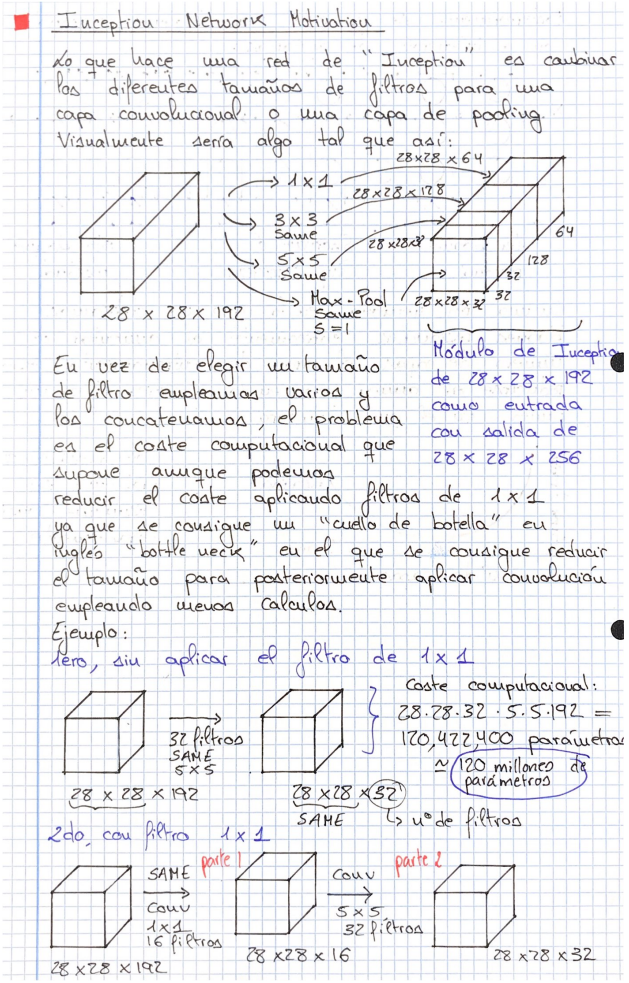 Inception Network Motivation
Lo que hace una red de "Inception" es combinar
los diferentes tamaños de filtros para una
capa convolucional o una capa de pooling.
Visualmente sería algo tal que así:
28 x 28 x 192
1 x 1
3 x 3
Same
5 x 5
Same
Max-Pool
Same
S = 1
28 x 28 x 64
28 x 28 x 128
28 x 28 x 32
28 x 28 x 32
32
32
128
64
Módulo de Inception
de 28 x 28 x 192
como entrada
con salida de
28 x 28 x 256
En vez de elegir un tamaño
de filtro empleamos varios y
los concatenamos, el problema
es el coste computacional que
supone aunque podemos
reducir el coste aplicando filtros de 1 x 1
ya que se consigue un "cuello de botella" en
inglés "bottle neck" en el que se consigue reducir
el tamaño para posteriormente aplicar convolución
empleando menos calculos.
Ejemplo:
1ero, sin aplicar el filtro de 1 x 1
32 filtros
SAME
5 x 5
28 x 28 x 192
28 x 28 x 32
SAME
↳ nº de filtros
Coste computacional:
28·28·32·5·5·192 =
120,422,400 parámetros
≃ 120 millones de
parámetros
2do, con filtro 1 x 1
28 x 28 x 192
SAME
parte 1
CONV
1 x 1
16 filtros
28 x 28 x 16
CONV
parte 2
5 x 5
32 filtros
28 x 28 x 32